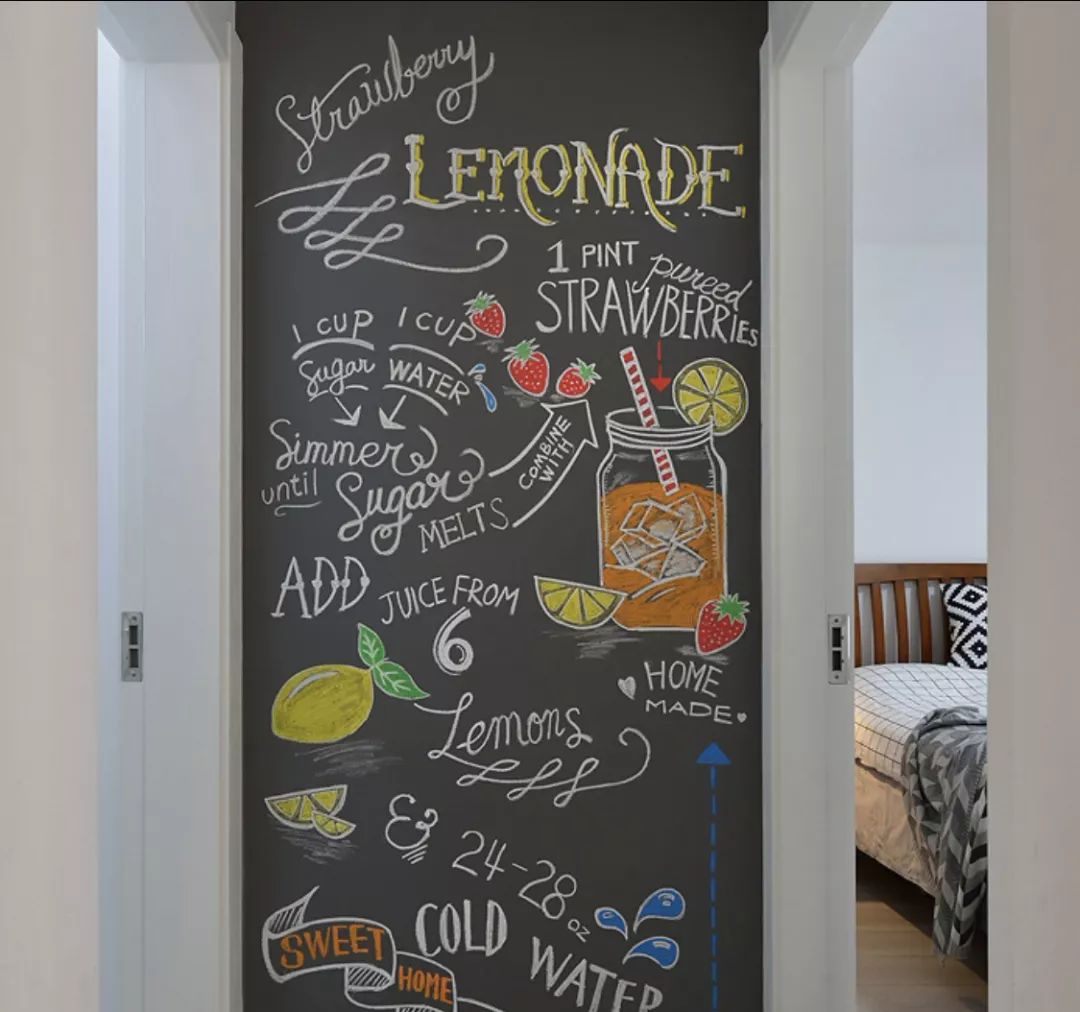 Strawberry
LEMONADE
1 PINT
pureed
STRAWBERRIES
1 CUP
Sugar
1 CUP
WATER
Simmer
until
Sugar
MELTS
COMBINE
WITH
ADD
JUICE FROM
6
Lemons
HOME
MADE
&
24-28 oz
COLD
WATER
SWEET
HOME